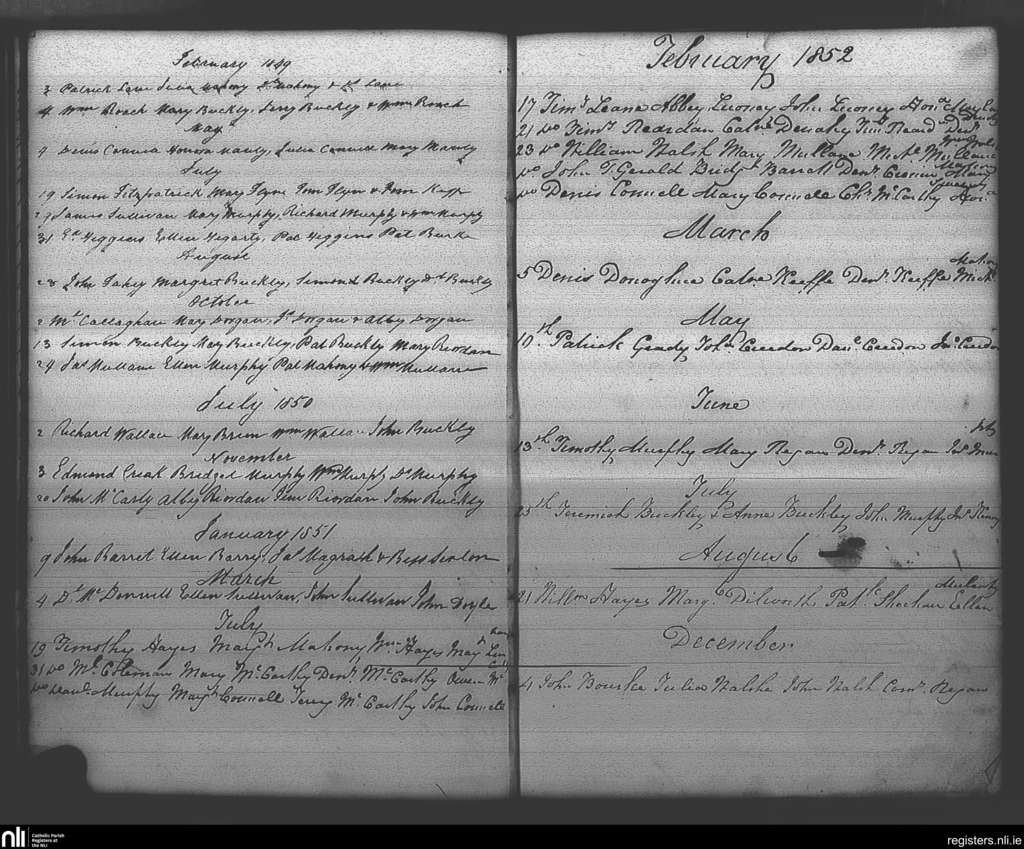 February 1849
3 Patrick Lane Julia Mahony Dl Mahony & Lane
4 Wm Roach Mary Buckly, Jerry Buckley & Wm Roach
May
9 Denis Connell Honora Manly, Julia Connell Mary Manly
July
19 Simon Fitzpatrick Mary Flynn Flynn &
29 James Sullivan Mary Murphy, Richard Murphy & Wm Murphy
31 Higgins Ellen Hegarty, Pat Higgins Pat Burke
August
28 John Fahey Margret Buckley, Simond Buckley Buckly
October
2 Ml Callaghan Mary Dorgan, Dorgan & Abby Dorgan
13 Simon Buckley Mary Buckley, Pat Buckley Mary Riordan
24 Jas Mullane Ellen Murphy Pat Mahony & Wm Mullane
July 1850
2 Richard Wallace Mary Breen Wm Wallace John Buckley
November
3 Edmond Creak Bridget Murphy Wm Murphy Dl Murphy
20 John McCarty Abby Riordan Tim Riordan John Buckley
January 1851
9 John Barret Ellen Barry, Jas Magrath & Bess
March
4 Dl McDonnell Ellen Sullivan, John Sullivan John Doyle
July
19 Timothy Hayes Margt Mahony Wm Hayes
31 Do Ml Coleman Mary McCarthy Denl McCarthy Owen Mc
Do Murphy Margt Connell Jerry McCarthy John Connell
February 1852
17 Timy Leane Abbey Looney John Looney Hona
21 Do Timy Reardan Cathe Denahy Timy Reard
23 Do William Walsh Mary Mullane Michl Mullane
Do John FGerald Bridgt Barrett Denl Cronin Mary
Do Denis Connell Mary Connell Chs McCarthy Hon
March
5 Denis Donoghue Cathe Keeffe Denl Keeffe Michl
May
10th Patrick Grady Joha Creedon Danl Creedon Jno Creedon
June
13th Timothy Murphy Mary Regan Denl Regan Jno
July
25th Jeremiah Buckley & Anne Buckley John Murphy Jno
August
21 Willm Hayes Margt Dilworth Patk Sheehan Ellen
December
4 John Bourke Julia Walsh John Walsh Corns Regan
nli
Catholic Parish
Registers at
the NLI
registers.nli.ie